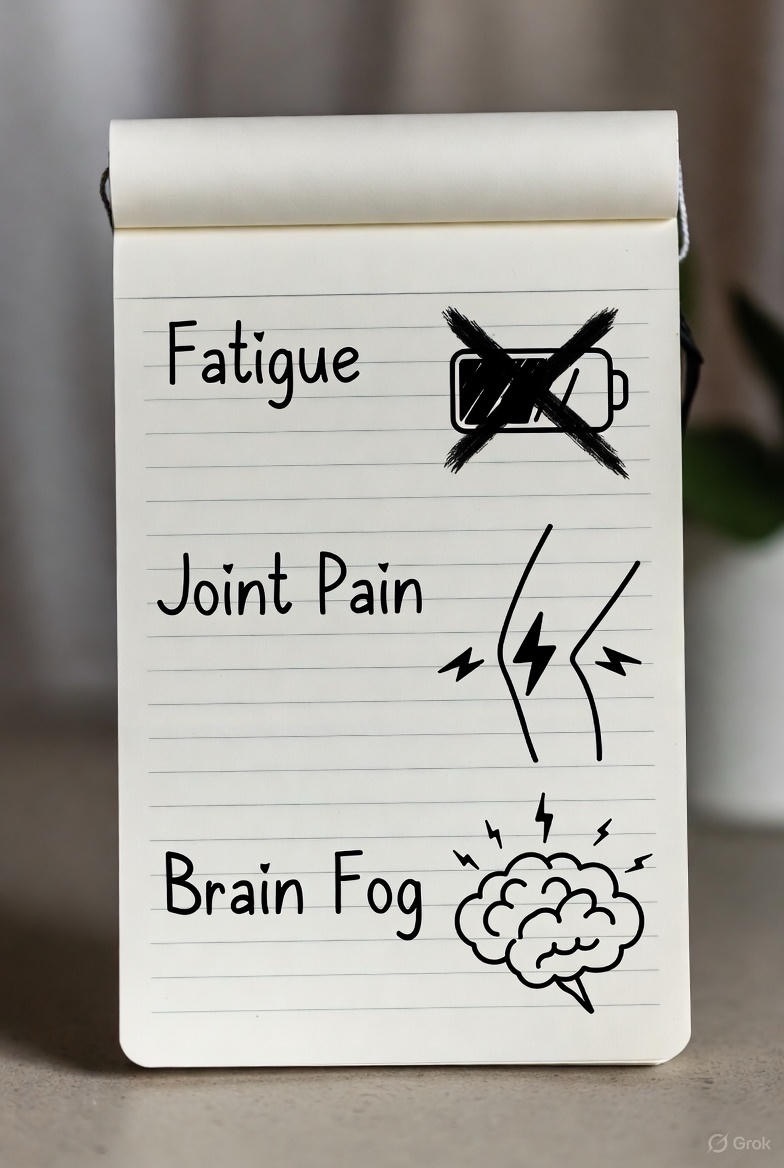 Fatigue
Joint Pain
Brain Fog
Grok